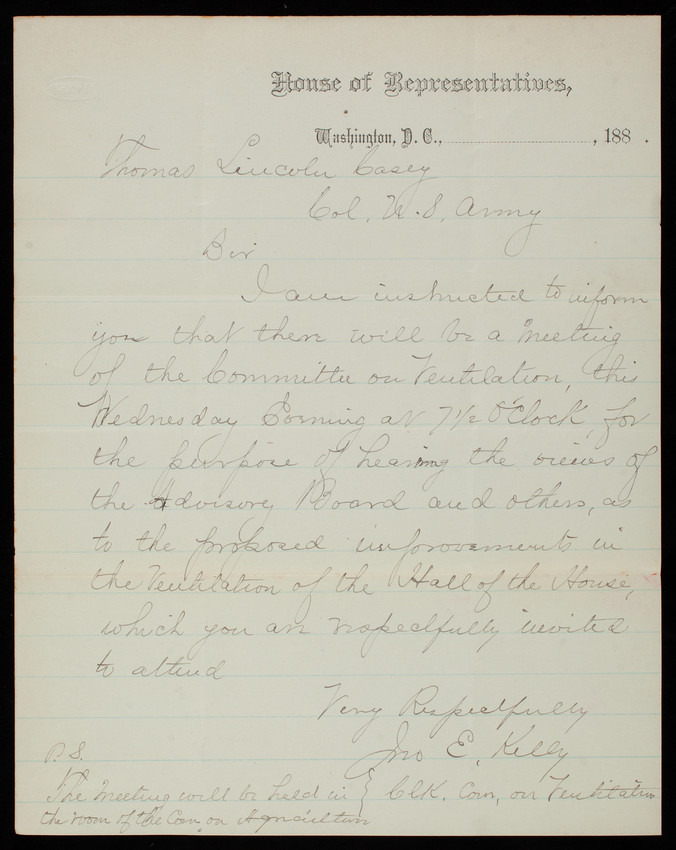 House of Representatives,
Washington, D. C., , 188 .
Thomas Lincoln Casey
Col. U.S. Army
Sir
I am instructed to inform
you that there will be a meeting
of the Committee on Ventilation, this
Wednesday Evening at 7 1/2 O'Clock, for
the purpose of hearing the views of
the Advisory Board and others, as
to the proposed improvements in
the Ventilation of the Hall of the House,
which you are respectfully invited
to attend
Very Respectfully
Jno E. Kelly
Clk. Com, on Ventilation
P.S.
The meeting will be held in
the room of the Com, on Agriculture